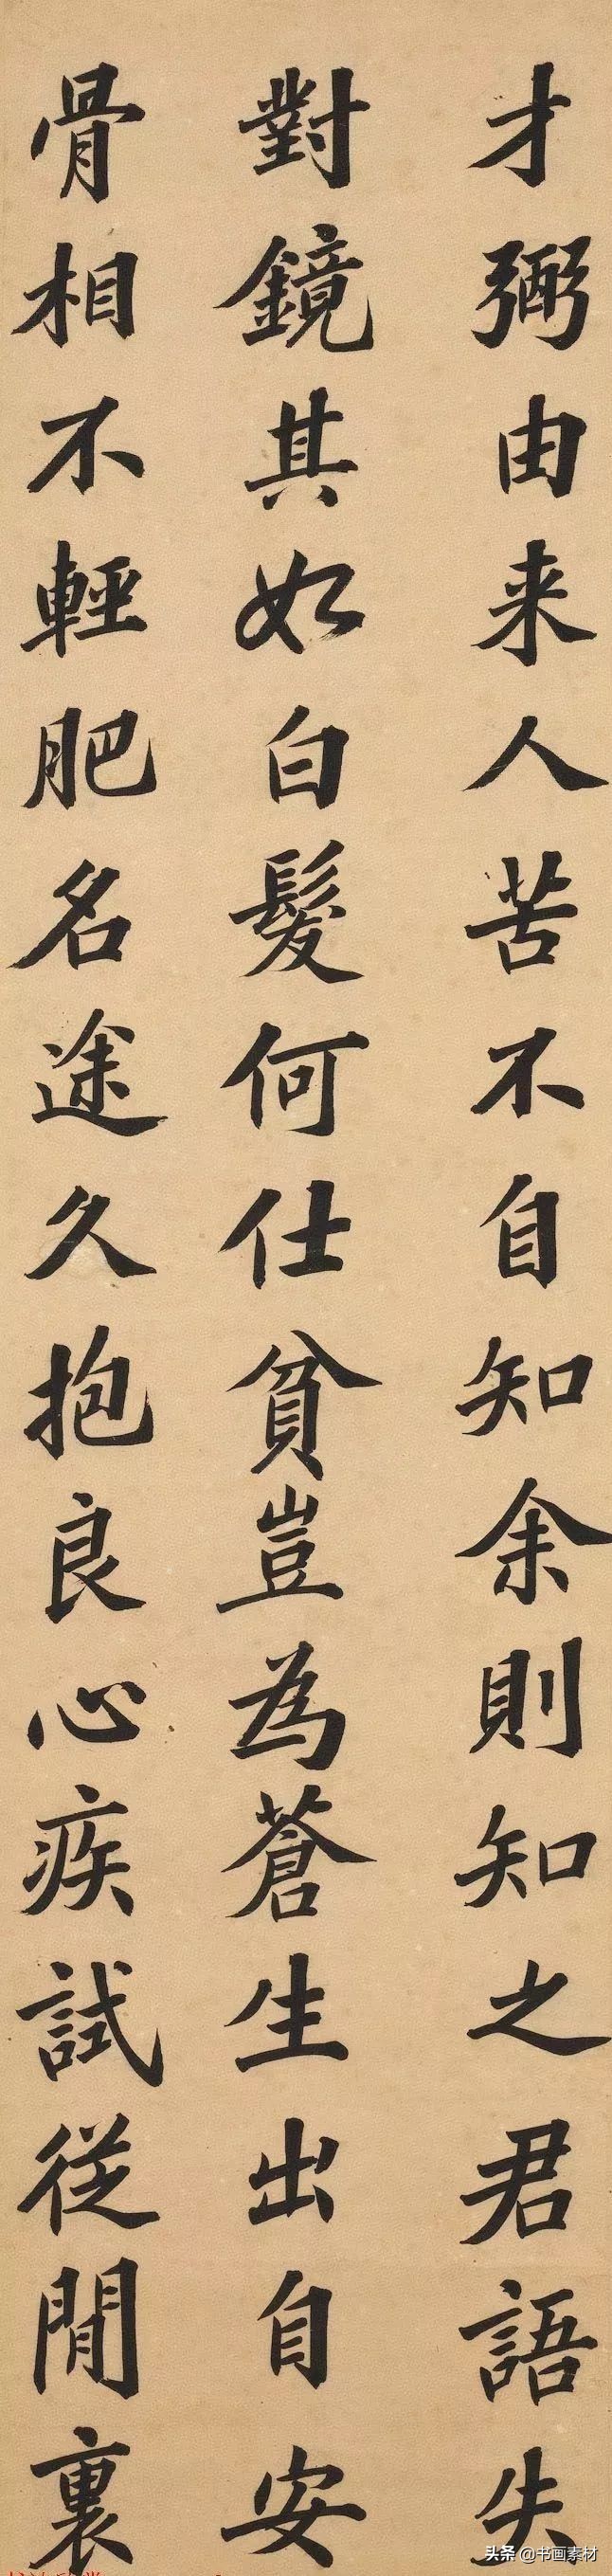 才弼由来人苦不自知余則知之君語失
對鏡其如白髮何仕貧豈為蒼生出自安
骨相不輕肥名途久抱良心疾試從閒裏
头条 @书画素材